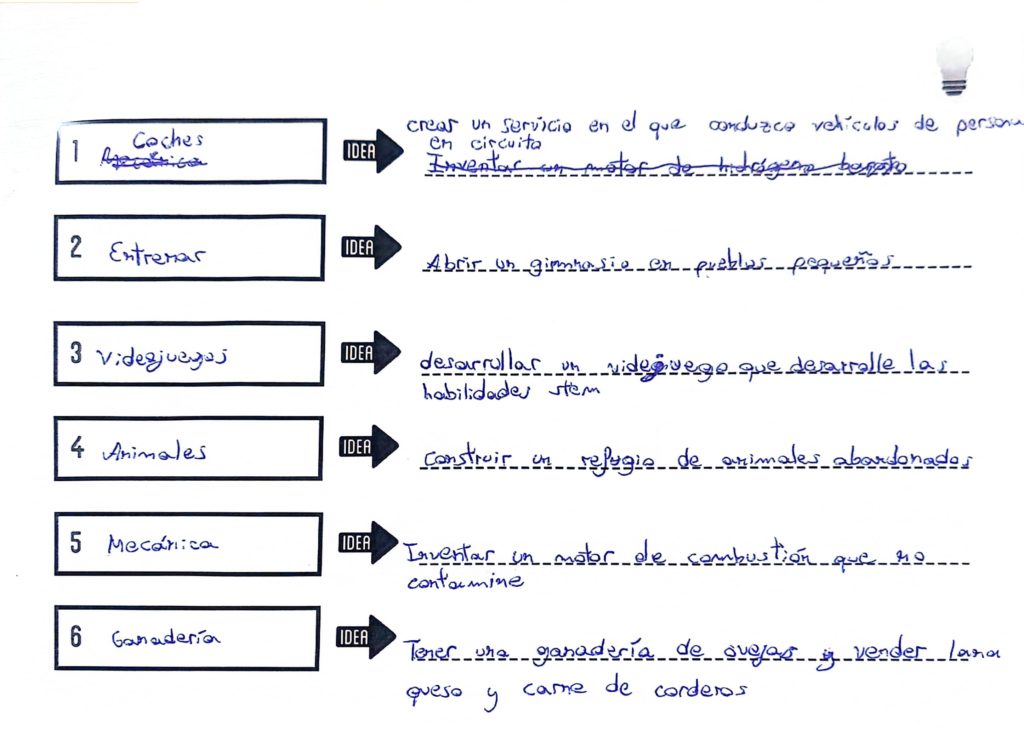 1 Coches
Mecánica
IDEA
crear un servicio en el que conduzca vehículos de persona
en circuito
Inventar un motor de hidrógeno barato
2 Entrenar
IDEA
Abrir un gimnasio en pueblos pequeños
3 Videojuegos
IDEA
desarrollar un videojuego que desarrolle las
habilidades stem
4 Animales
IDEA
construir un refugio de animales abandonados
5 Mecánica
IDEA
Inventar un motor de combustión que no
contamine
6 Ganadería
IDEA
Tener una ganadería de ovejas y vender lana
queso y carne de corderos